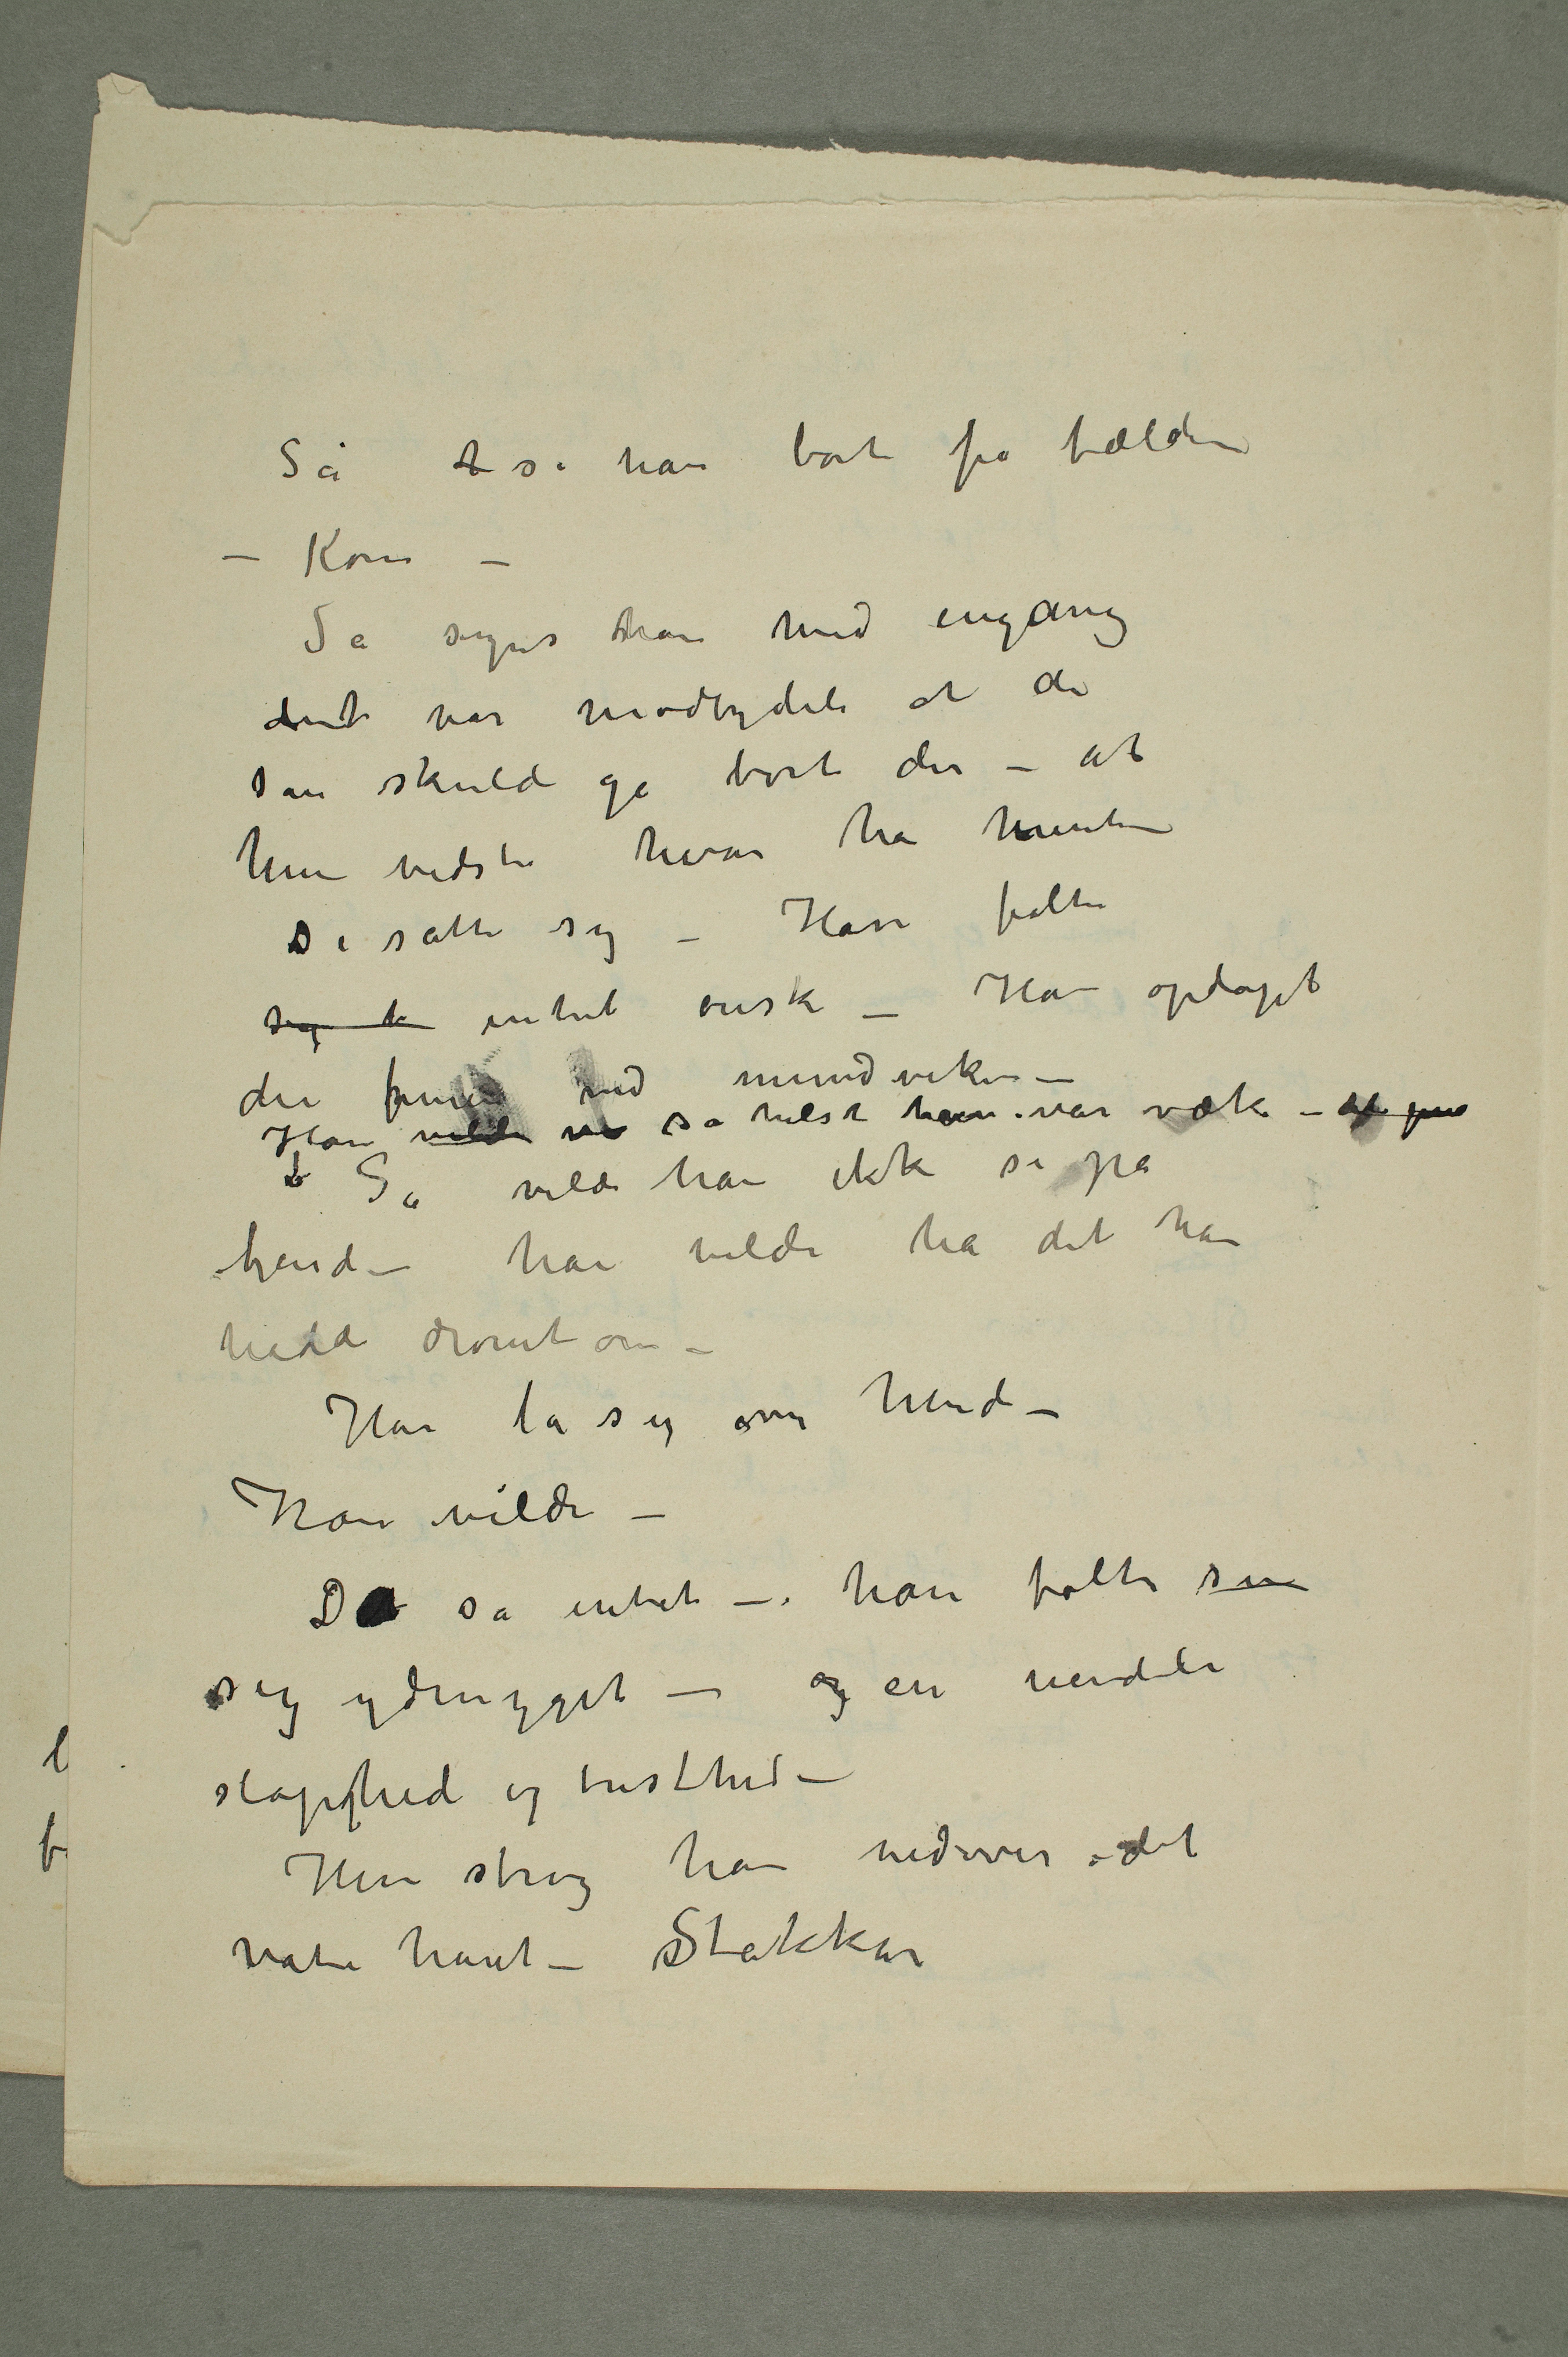 Så så han bort på fælden
– Kom –
Så synes han med engang
det var modbydeli at de
som skulde gå bort der – at
hun vidste hvor han mente
De satte sig – Han følte
sig t intet ønske – Han opdaget
der ved mundviken –
Han vilde ve så helst hun var væk –
Så vilde han ikke se på
hende – han vilde ha det han
hadde drømt om –
Han la sig over hende –
Han vilde –
De sa intet – han følte sin
sig ydmyget – og en uendeli
slaphed og tristhed –
Hun strøg ham nedover det
våte håret – Stakkar
l
f